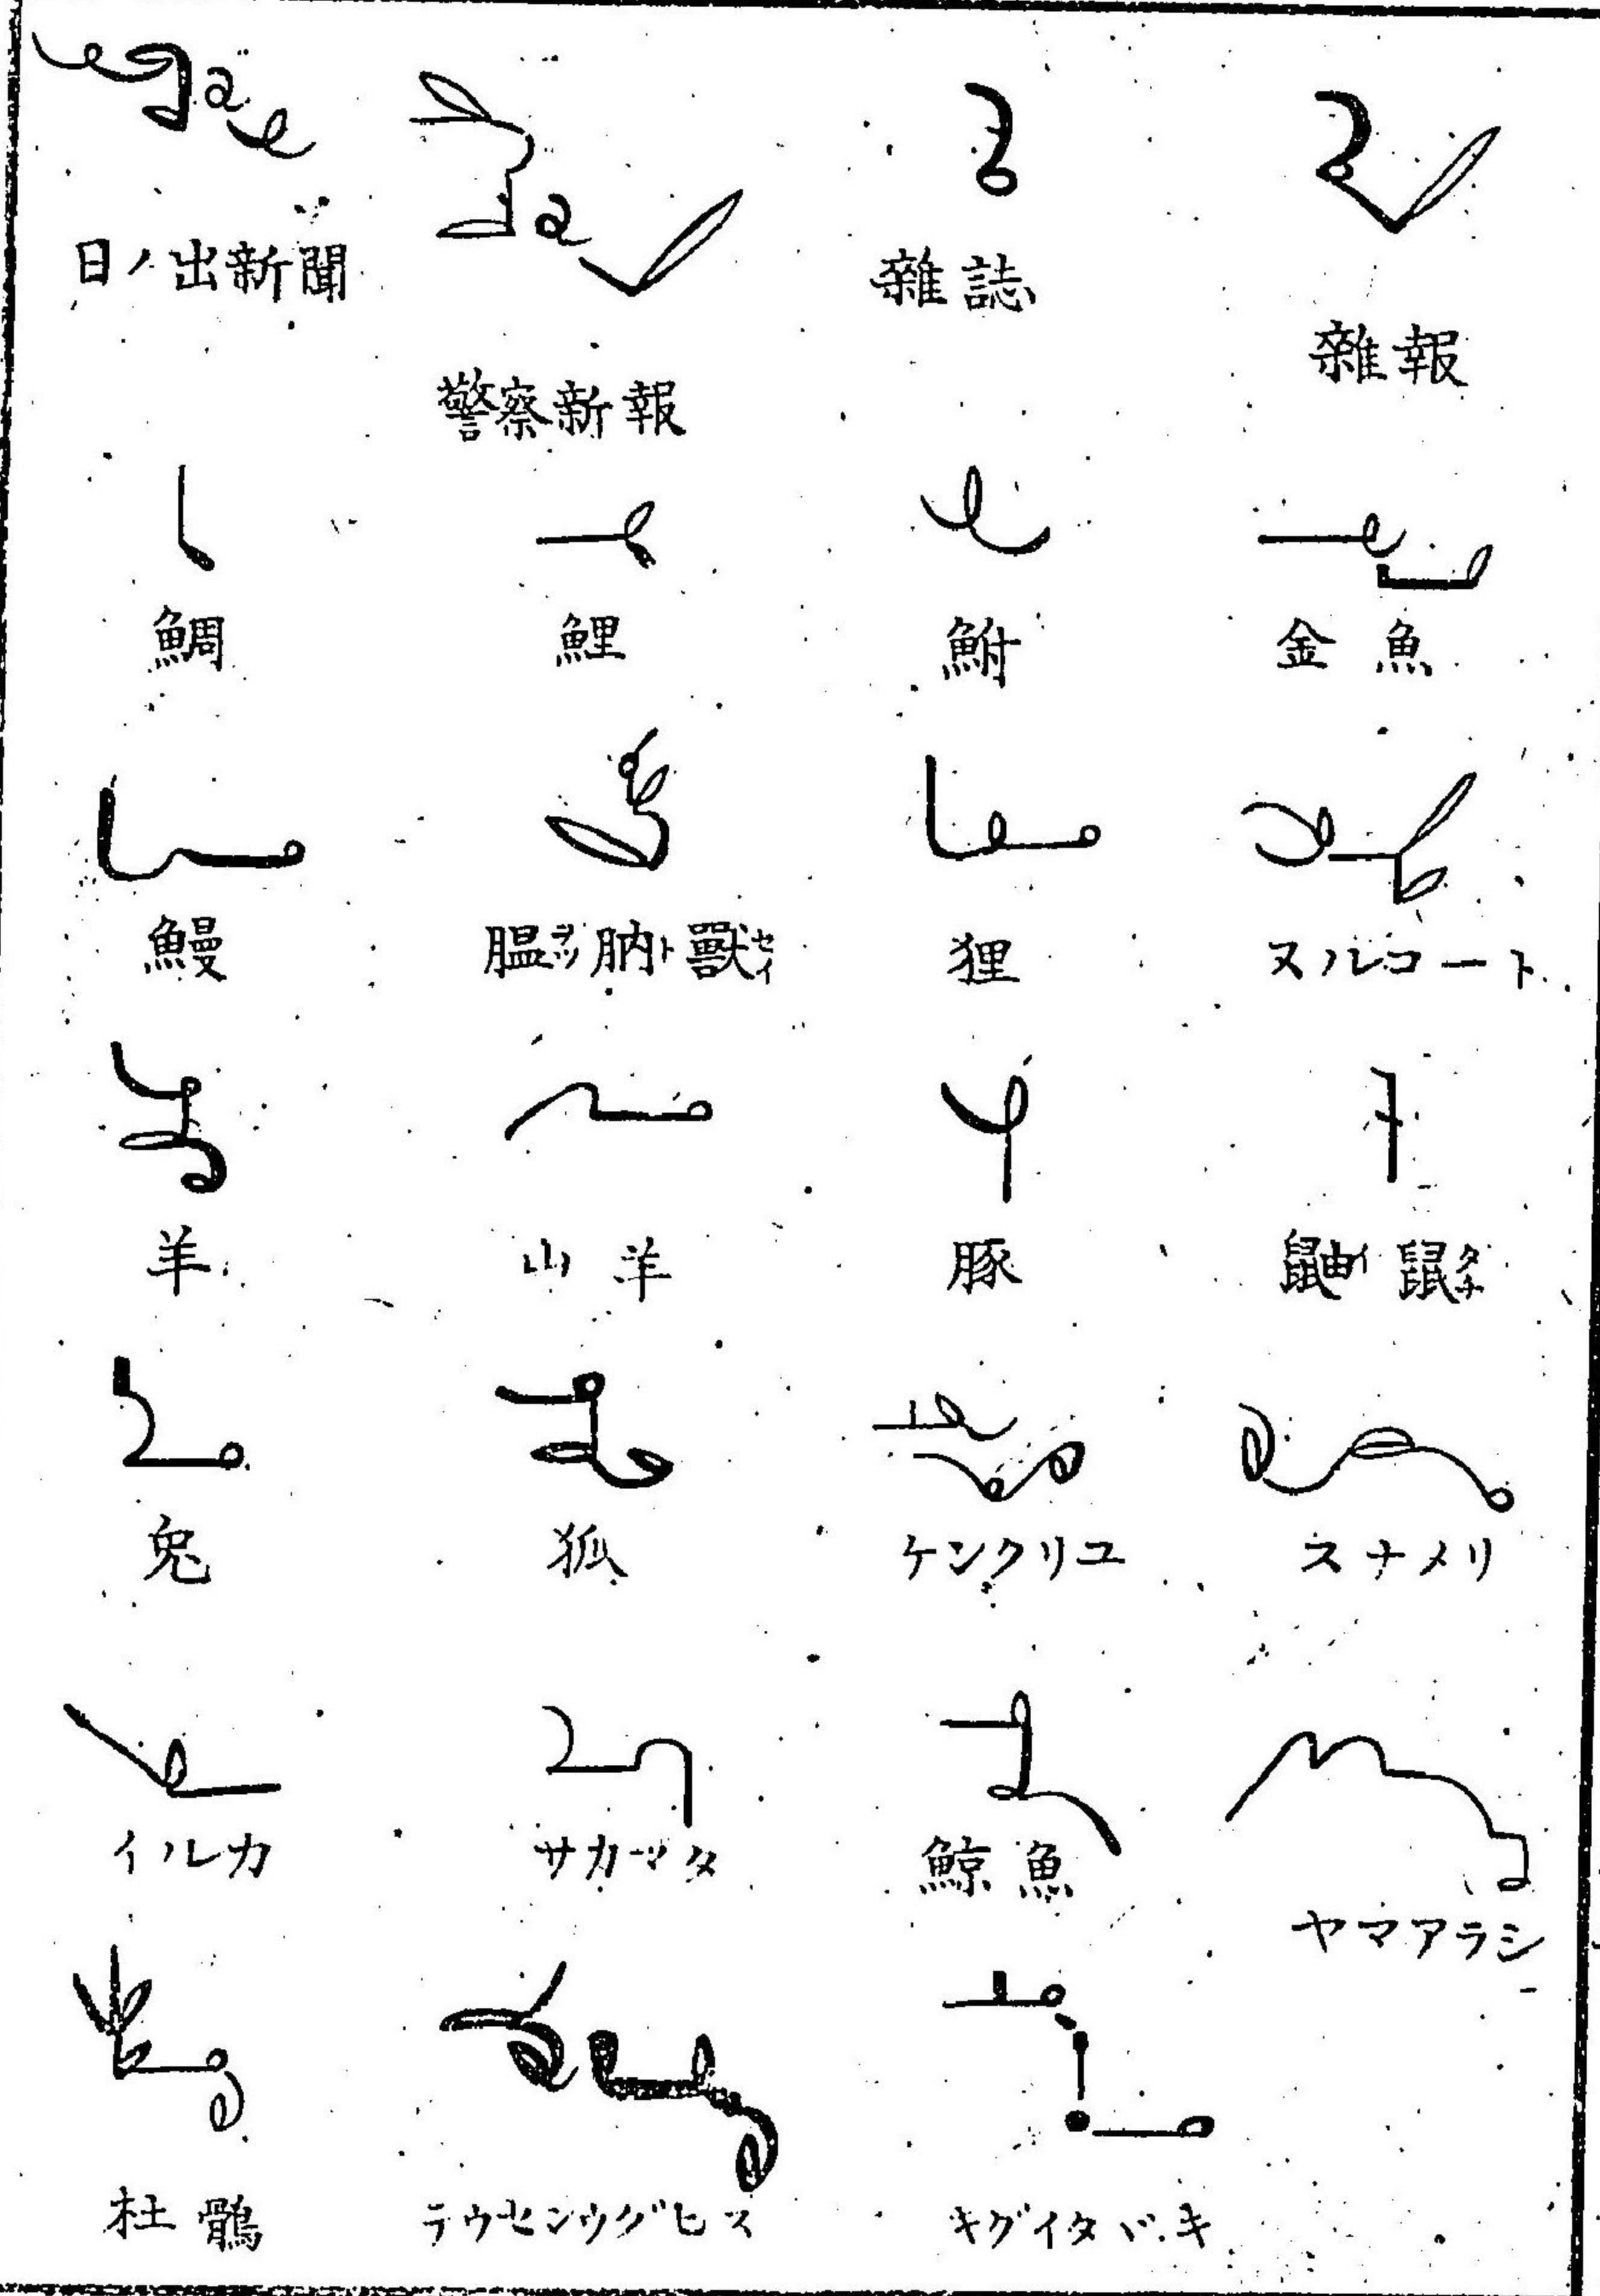 日ノ出新聞 警察新報 雜誌 雜報
鯛 鯉 鮒 金魚
鰻 膃肭獸 狸 ヌルコート
羊 山羊 豚 鼬鼠
兔 狐 ケンクリユ スナメリ
イルカ サカマタ 鯨魚 ヤマアラシ
杜鵑 テウセンウグヒス キグイタヾキ